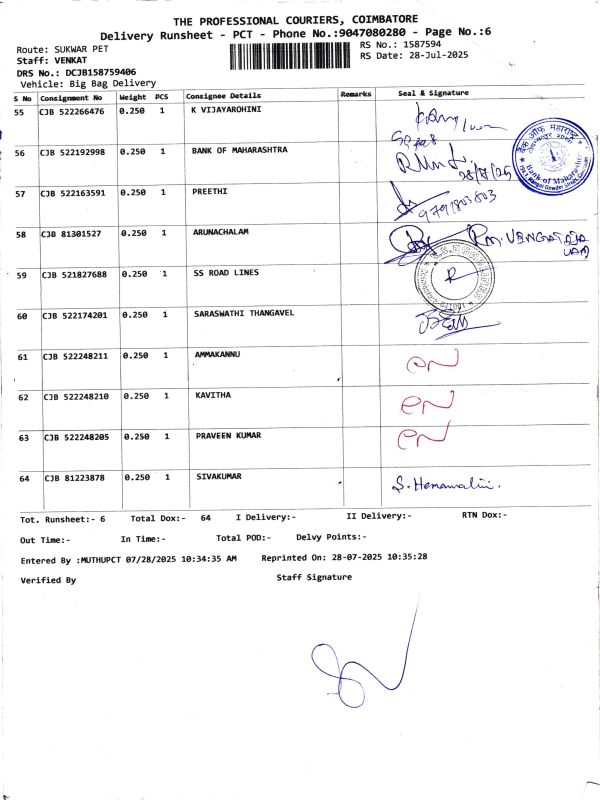 THE PROFESSIONAL COURIERS, COIMBATORE
Delivery Runsheet - PCT - Phone No.:9047080280 - Page No.:6
Route: SUKWAR PET
RS No.: 1587594
Staff: VENKAT
RS Date: 28-Jul-2025
DRS No.: DCJB158759406
Vehicle: Big Bag Delivery
S No Consignment No Weight PCS Consignee Details Remarks Seal & Signature
55 CJB 522266476 0.250 1 K VIJAYAROHINI
56 CJB 522192998 0.250 1 BANK OF MAHARASHTRA 28/7/25
बैंक ऑफ महाराष्ट्र
Bank of Maharashtra
57 CJB 522163591 0.250 1 PREETHI 9791803803
58 CJB 81301527 0.250 1 ARUNACHALAM
59 CJB 521827688 0.250 1 SS ROAD LINES
60 CJB 522174201 0.250 1 SARASWATHI THANGAVEL
61 CJB 522248211 0.250 1 AMMAKANNU
62 CJB 522248210 0.250 1 KAVITHA
63 CJB 522248205 0.250 1 PRAVEEN KUMAR
64 CJB 81223878 0.250 1 SIVAKUMAR S. Hemamalini.
Tot. Runsheet:- 6 Total Dox:- 64 I Delivery:- II Delivery:- RTN Dox:-
Out Time:- In Time:- Total POD:- Delvy Points:-
Entered By :MUTHUPCT 07/28/2025 10:34:35 AM Reprinted On: 28-07-2025 10:35:28
Verified By Staff Signature